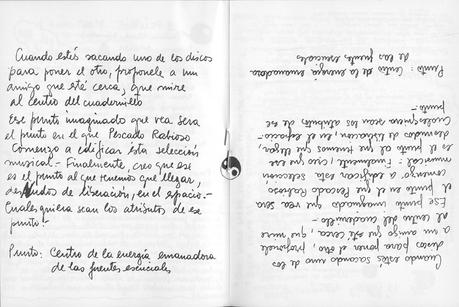 Cuando estés sacando uno de los discos
para poner el otro, proponele a un
amigo que esté cerca, que mire
al centro del cuadernillo
Ese punto imaginado que vea sera
el punto en el que Pescado Rabioso
Comenzo a edificar esta selección
musical.- Finalmente, creo que ese
es el punto al que tenemos que llegar,
desnudos de liberación, en el espacio.-
Cualesquiera sean los atributos de ese
punto.-
Punto: Centro de la energía emanadora
de las fuentes esenciales
Cuando estés sacando uno de los
discos para poner el otro, proponele
a un amigo que esté cerca, que mire
al centro del cuadernillo.-
Ese punto imaginado que vea sera
el punto en el que Pescado Rabioso
comenzo a edificar esta selección
musical.- Finalmente, creo que ese
es el punto al que tenemos que llegar,
desnudos de liberación, en el espacio.-
Cualesquiera sean los atributos de ese
punto.-
Punto: Centro de la energía emanadora
de las fuentes esenciales